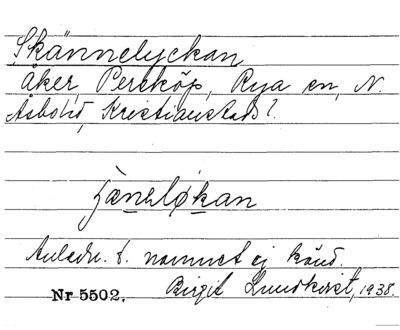 Skännelyckan
Åker, Perskóp, Rya sn, N.
Åsbo hd, Kristianstads l.
Anledn. t. namnet ej känd.
Nr 5502. Birgit Lundkvist, 1938.